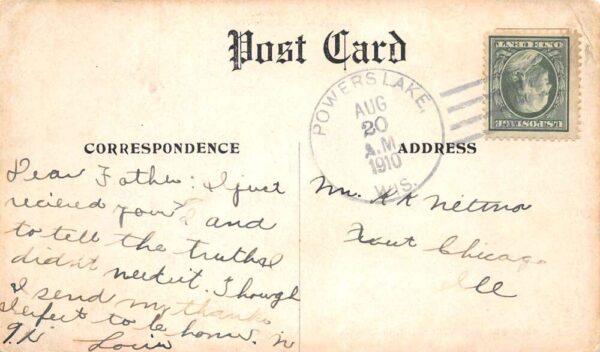 Post Card
POWERS LAKE,
AUG
20
A.M
1910
WIS.
U.S.POSTAGE
ONE CENT
CORRESPONDENCE
ADDRESS
Dear Father: I just
recieved your and
to tell the truth I
did'nt need it. Though
I send my thanks
I expect to be home in
Mr.
Chicago
Ill